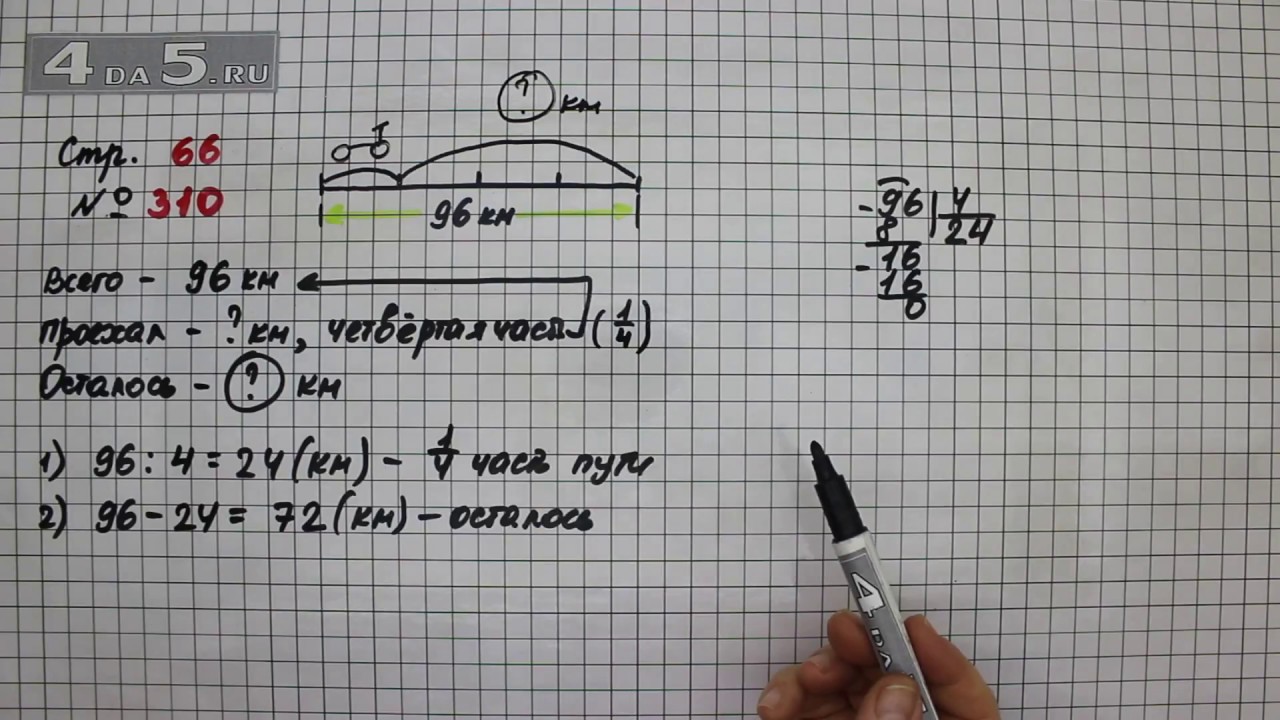 4 DA 5.RU
Стр. 66
№ 310
? км
96 км
Всего - 96 км
проехал - ? км, четвёртая часть (1/4)
Осталось - ? км
1) 96 : 4 = 24 (км) - 1/4 часть пути
2) 96 - 24 = 72 (км) - осталось
- 96 | 4
8 24
- 16
16
0
4 DA